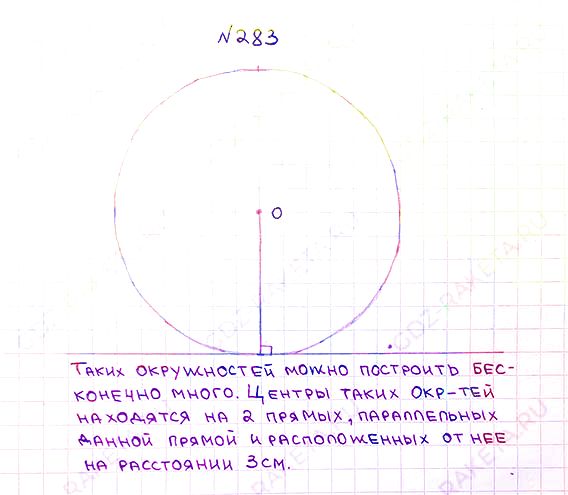 N283
O
ТАКИХ ОКРУЖНОСТЕЙ МОЖНО ПОСТРОИТЬ БЕС-
КОНЕЧНО МНОГО. ЦЕНТРЫ ТАКИХ ОКР-ТЕЙ
НАХОДЯТСЯ НА 2 ПРЯМЫХ, ПАРАЛЛЕЛЬНЫХ
ДАННОЙ ПРЯМОЙ И РАСПОЛОЖЕННЫХ ОТ НЕЕ
НА РАССТОЯНИИ 3 СМ.
GDZ-RAKETA.RU